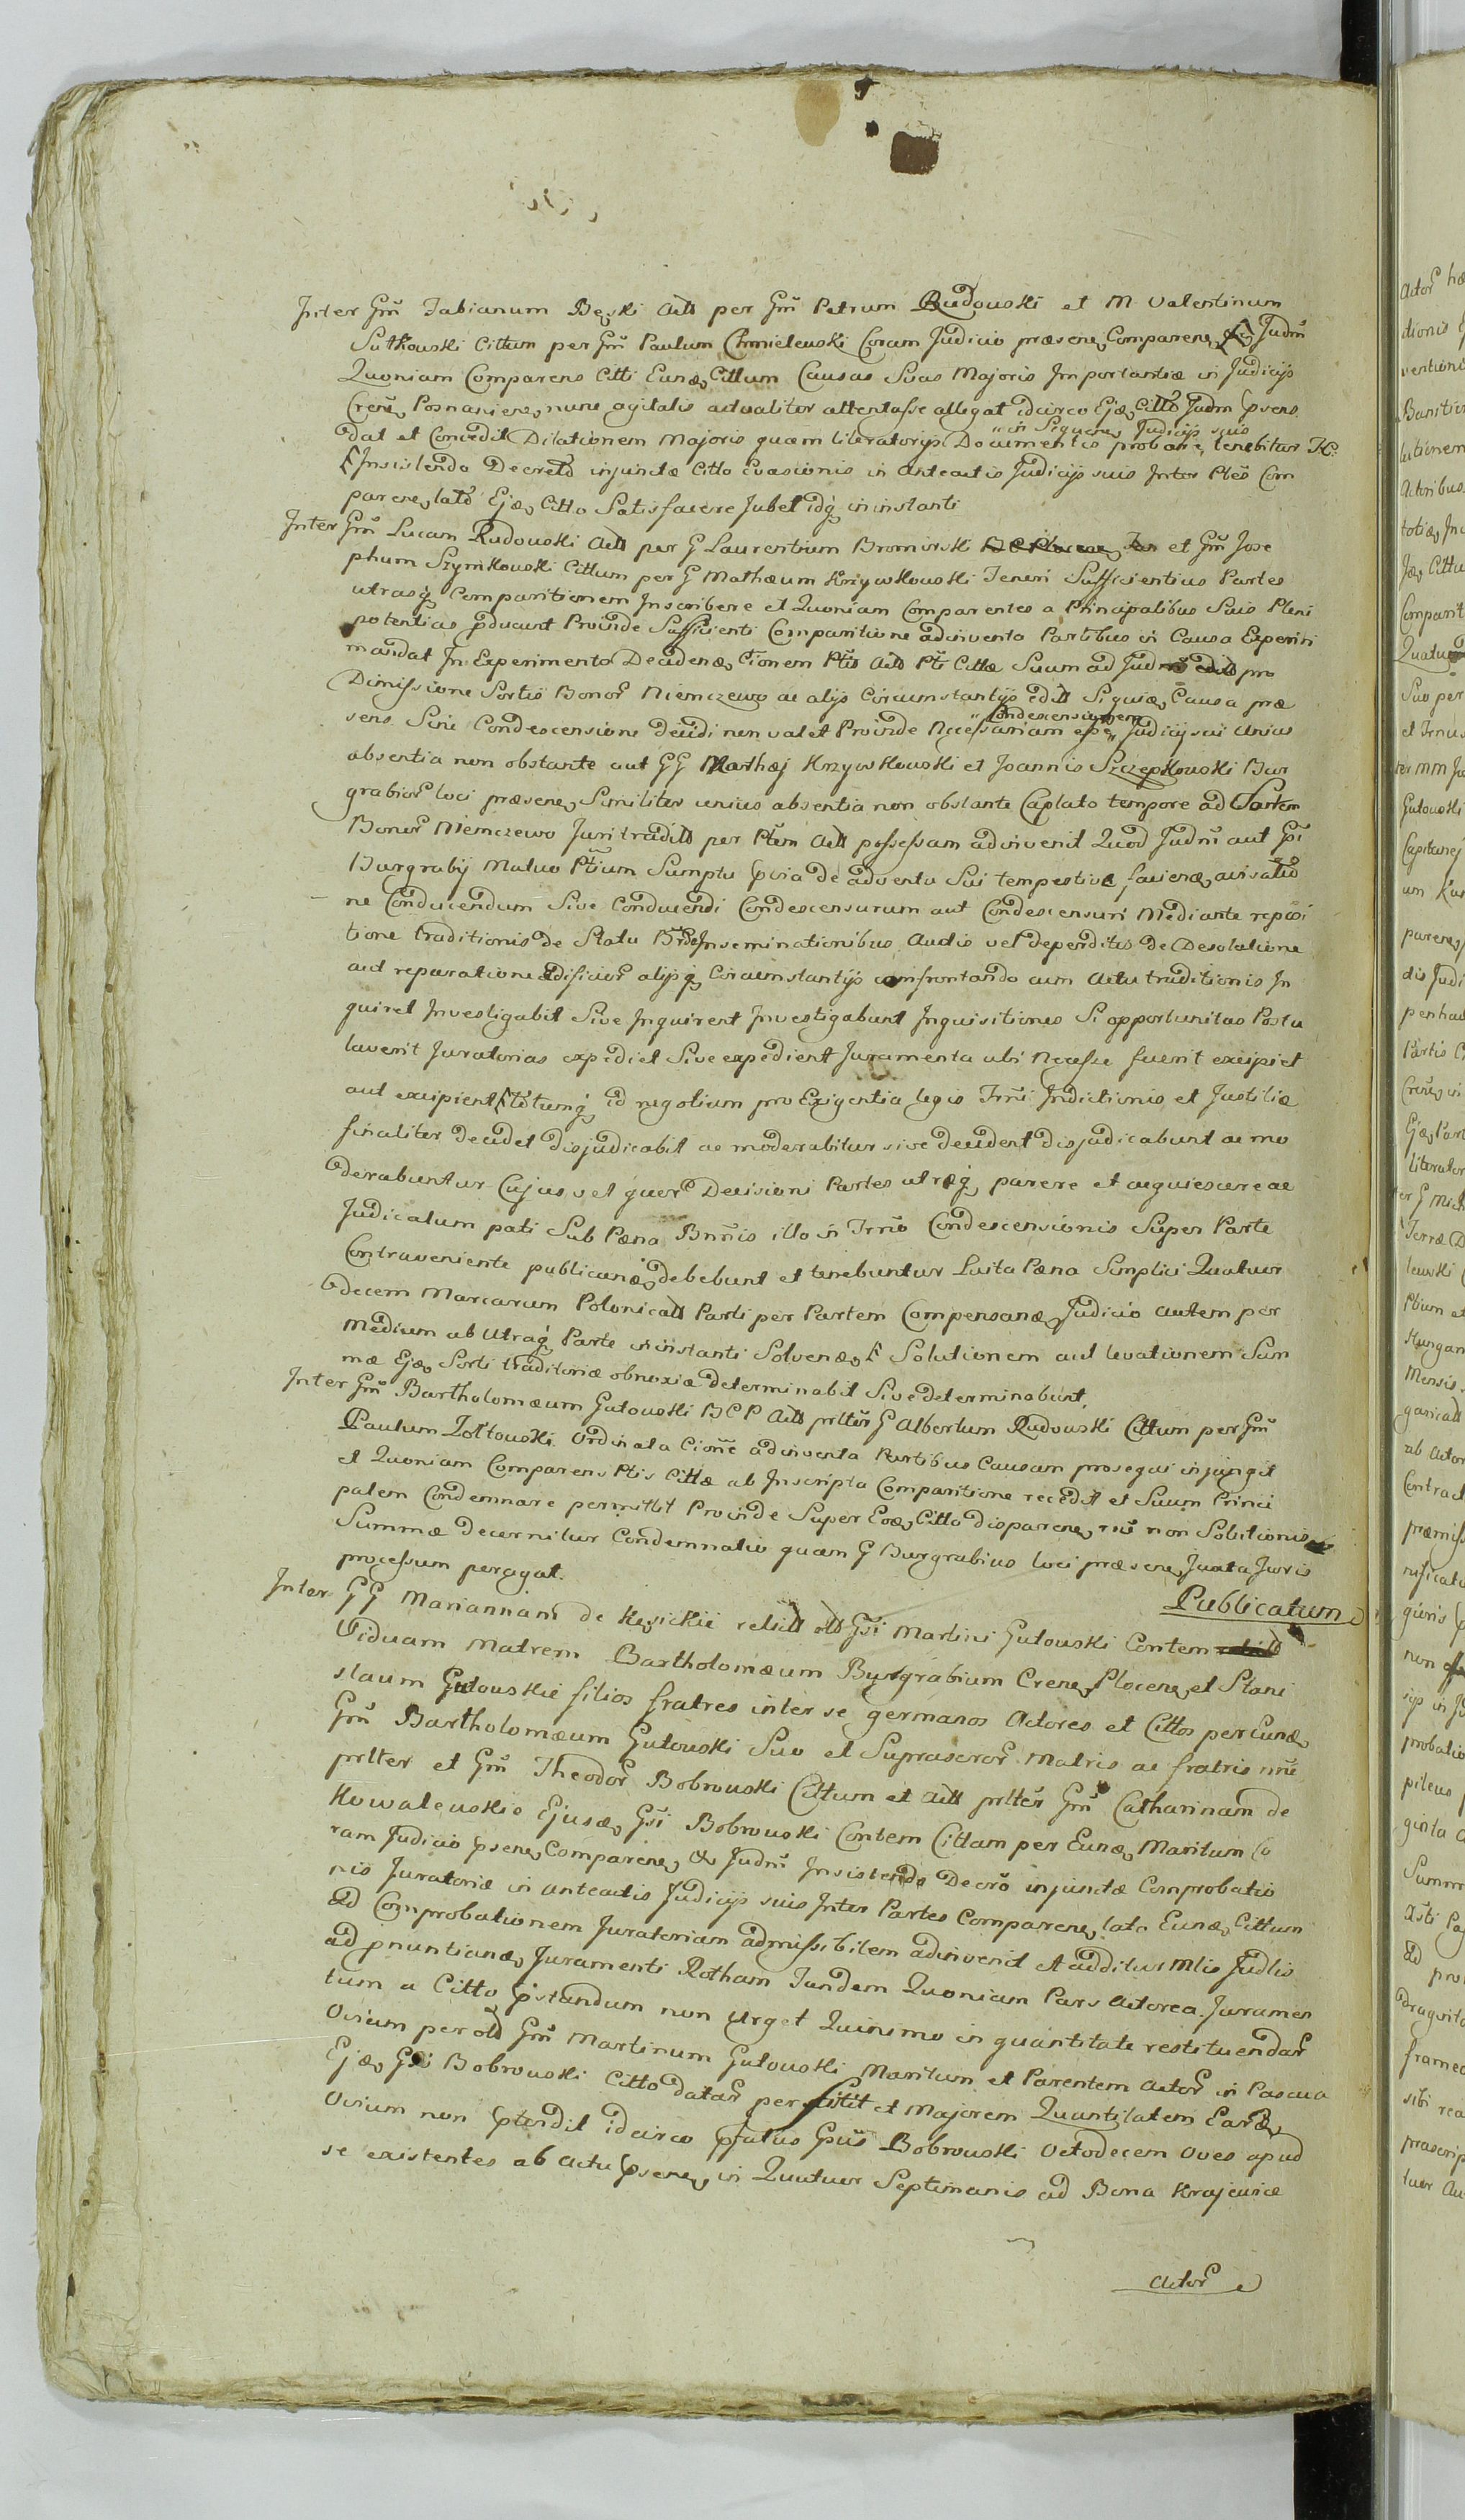 Inter Gm̃ Fabianum Bęski Actt per Gm̃ Petrum Rudowski et M Valentinum
Sutkowski Cittum per Gm̃ Paulum Chmielewski Coram Judicio præsen, Comparen, Judm̃
Quoniam Comparens Citti Eund, Cittum Causas Suas Majoris Importantiæ in Judicijs
Cren, Posnanien, nunc agitatis actualiter attentasse allegat idcirco Ejd, Citto Judm psens
dat et Concedit Dilationem Majoris quam literatorijs Documentis probare, tenebitur
in Sequen, Judicijs suis
Insistendo Decreto injunctæ Citto Evasionis in anteactis Judicijs suis Inter Ptes Com
paren, lato Ejd, Citto Satisfacere Jubet idq in instanti
Inter Gm̃ Lucam Rudowski Actt per G Laurentium Bromirski et Gm̃ Jose
phum Szymkowski Cittum per G Mathæum Krzywkowski Teneri Sufficientius Partes
utrasq Comparitionem Inscribere et Quoniam Comparentes a Principalibus Suis Pleni
potentias pducunt Proinde Sufficienti Comparitione adinventa Partibus in Causa Experiri
mandat In Experimento Decidend, Ctionem Ptis Actt Ptĩ Cittæ Suum ad Judm̃ pro
Dimissione Sortis Bonor Niemczewo ac alijs Circumstantijs editt Siquid, Causa præ
sens Sine Condescensione decidi non valet Proinde Necessariam esse, Judicij sui Unius
Condescensionem
absentia non obstante aut GG Mathæj Krzywkowski et Joannis Szczepkowski Bur
grabior loci præsen, Similiter unius absentia non obstante Captato tempore ad Sortem
Bonor Niemczewo Juri traditt per Ptem Actt possessam adinvenit Quod Judm̃ aut Gsi
Burgrabij Mutuo Ptium Sumptu pvia de adventu Sui tempestive faciend, avisatio
ne Conducendum Sive Conducendi Condescensurum aut Condescensuri Mediante reposi
tione traditionis de Statu Inseminationibus Auctis vel deperditis de Desolatione
aut reparatione ædificior alijsq Circumstantijs confrontando cum Actu traditionis In
quiret Investigabit Sive Inquirent Investigabunt Inquisitiones Si opportunitas Postu
laverit Juratorias expediet Sive expedient Juramenta ubi Necesse fuerit excipiet
aut excipient totumq id negotium pro Exigentia legis Trni Indictionis et Justitiæ
finaliter decidet disjudicabit ac moderabitur sive decident disjudicabunt ac mo
derabuntur Cujus vel quor Decisioni Partes utræq, parere et acquiescere ac
Judicatum pati Sub Pæna Bnnis illo in Trno Condescensionis Super Parte
Contraveniente publicand, debebunt et tenebuntur Luita Pæna Simplici Quatuor
decem Marcarum Polonicatt Parti per Partem Compensand, Judicio autem per
Medium ab Utraq Parte in instanti Solvend, Solutionem aut levationem Sum
mæ Ejd, Sorti traditoriæ obnoxiæ determinabit Sive determinabunt,
Inter Gm̃ Bartholomæum Gutowski B C P Actt prlter G Albertum Rudowski Cittum per Gm̃
Paulum Zołtowski. Ordinata Cione adinventa Partibus Causam prosequi injungit
et Quoniam Comparens Ptis Cittæ ab Inscripta Comparitione recedit et Suum Princi
palem Condemnare permittit Proinde Super Eod, Citto disparen, rne non Solutionis
Summæ decernitur Condemnatio quam G Burgrabius loci præsen, Juxta Juris
processum peragat.
Publicatum
Inter GG Mariannam de Kęsickie relictt olt Gsi Martini Gutowski Contem
Viduam Matrem Bartholomæum Burgrabium Cren, Plocen, et Stani
slaum Gutowskie filios fratres inter se germanos Actores et Cittos per Eund,
Gm̃ Bartholomæum Gutowski Suo et Suprascror Matris ac fratris nne
prlter et Gm̃ Theodor Bobrowski Cittum et Actt prlter Gm̃ Catharinam de
Kowalewskis Ejusd, Gsi Bobrowski Contem Cittam per Eund, Maritum Co
ram Judicio psen, Comparen, Judm̃ Insistendo Decro injunctæ Comprobatio
nis Juratoriæ in anteactis Judicijs suis Inter Partes Comparen, lato Eund, Cittum
ad Comprobationem Juratoriam admissibilem adinvenit et additur Mlis Judlis
ad pnuntiand, Juramenti Rotham Tandem Quoniam Pars Actorea Juramen
tum a Citto pstandum non Urget Quinimo in quantitate restituendar
Ovium per olt Gm̃ Martinum Gutowski Maritum et Parentem Actor in Pascua
Ejd, Gsi Bobrowski Citto datar persistit et Majorem Quantitatem Eard,
Ovium non ptendit idcirco pfatus Gsus Bobrowski Octodecem Oves apud
se existentes ab Actu psen, in Quatuor Septimanis ad Bona Krajewice
Actor